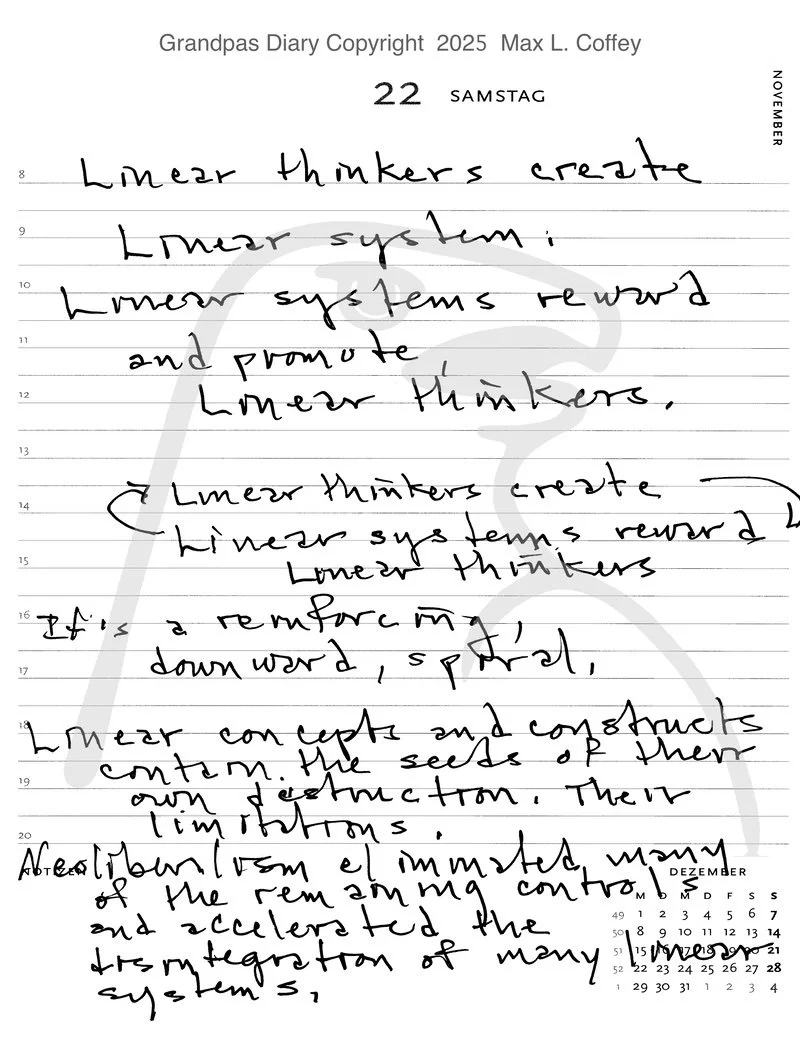 Grandpas Diary Copyright 2025 Max L. Coffey
22 SAMSTAG
NOVEMBER
8 Linear thinkers create
9 Linear system:
10 Linear systems reward
11 and promote
12 Linear thinkers.
13
Linear thinkers create
14 Linear systems reward
15 Linear thinkers
16 It's a reinforcing,
17 downward, spiral.
18 Linear concepts and constructs
contain the seeds of their
19 own destruction. Their
limitations.
20
NOTIZEN
Neoliberalism eliminated many
of the remaining controls
and accelerated the
disintegration of many linear
systems.
DEZEMBER
M D M D F S S
49 1 2 3 4 5 6 7
50 8 9 10 11 12 13 14
51 15 16 17 18 19 20 21
52 22 23 24 25 26 27 28
1 29 30 31 1 2 3 4